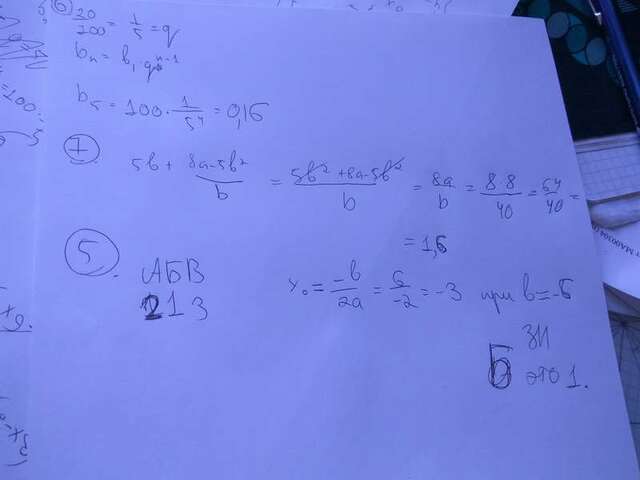 ⑥ 20/100 = 1/5 = q
bₙ = b₁·qⁿ⁻¹
b₅ = 100·1/5⁴ = 0,16
⑦ 5b + (8a-5b²)/b = (5b²+8a-5b²)/b = 8a/b = 8·8/40 = 64/40 =
= 1,6
⑤. АБВ
213
x₀ = -b/2a = 6/-2 = -3 при b=-6
Б это 1.